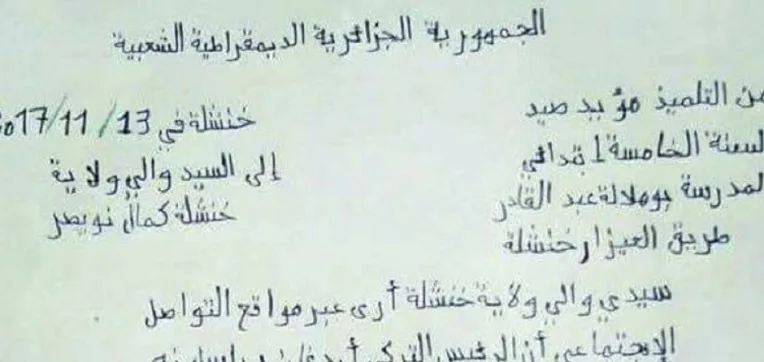 الجمهورية الجزائرية الديمقراطية الشعبية
من التلميذ مؤيد صيد
السنة الخامسة ابتدائي
المدرسة بوهلالة عبد القادر
طريق العيزار خنشلة
خنشلة في 13/11/2017
إلى السيد والي ولاية
خنشلة كمال نويصر
سيدي والي ولاية خنشلة أرى عبر مواقع التواصل
الإجتماعي أن الرئيس التركي